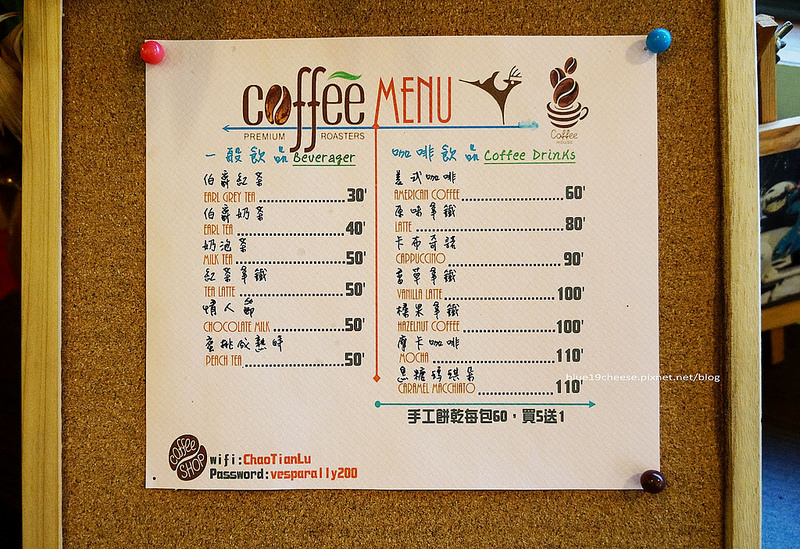 coffee MENU
PREMIUM ROASTERS
Coffee
HOUSE
一般飲品 Beverager
伯爵紅茶
EARL GREY TEA 30'
伯爵奶茶
EARL TEA 40'
奶泡茶
MILK TEA 50'
紅茶拿鐵
TEA LATTE 50'
情人節
CHOCOLATE MILK 50'
蜜桃戀熱
PEACH TEA 50'
咖啡飲品 Coffee Drinks
美式咖啡
AMERICAN COFFEE 60'
原味拿鐵
LATTE 80'
卡布奇諾
CAPPUCCINO 90'
香草拿鐵
VANILLA LATTE 100'
榛果拿鐵
HAZELNUT COFFEE 100'
摩卡咖啡
MOCHA 110'
焦糖瑪琪朵
CARAMEL MACCHIATO 110'
手工餅乾每包60，買5送1
coffee
SHOP
wifi:ChaoTianLu
Password:vesparally200
blue19cheese.pixnet.net/blog